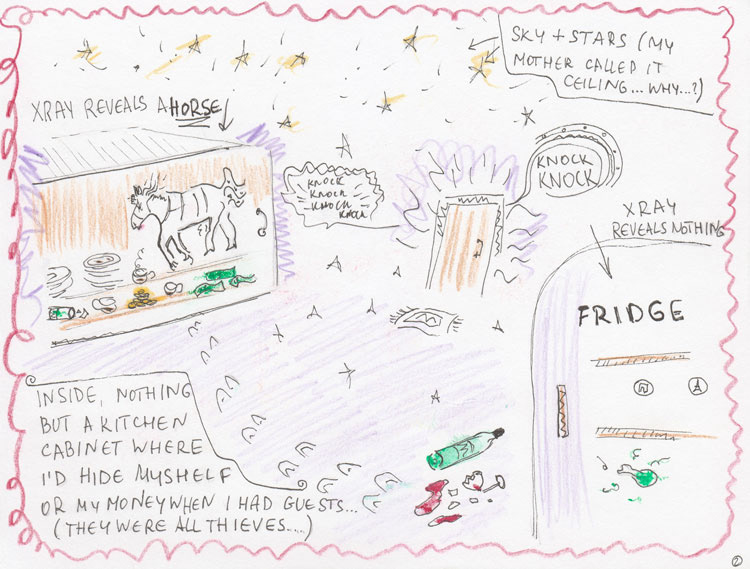 SKY + STARS (MY
MOTHER CALLED IT
CEILING... WHY...?)
XRAY REVEALS A HORSE
KNOCK
KNOCK
KNOCK
KNOCK
KNOCK
KNOCK
XRAY
REVEALS NOTHING
FRIDGE
INSIDE, NOTHING
BUT A KITCHEN
CABINET WHERE
I'D HIDE MYSHELF
OR MY MONEY WHEN I HAD GUESTS...
(THEY WERE ALL THIEVES....)
2